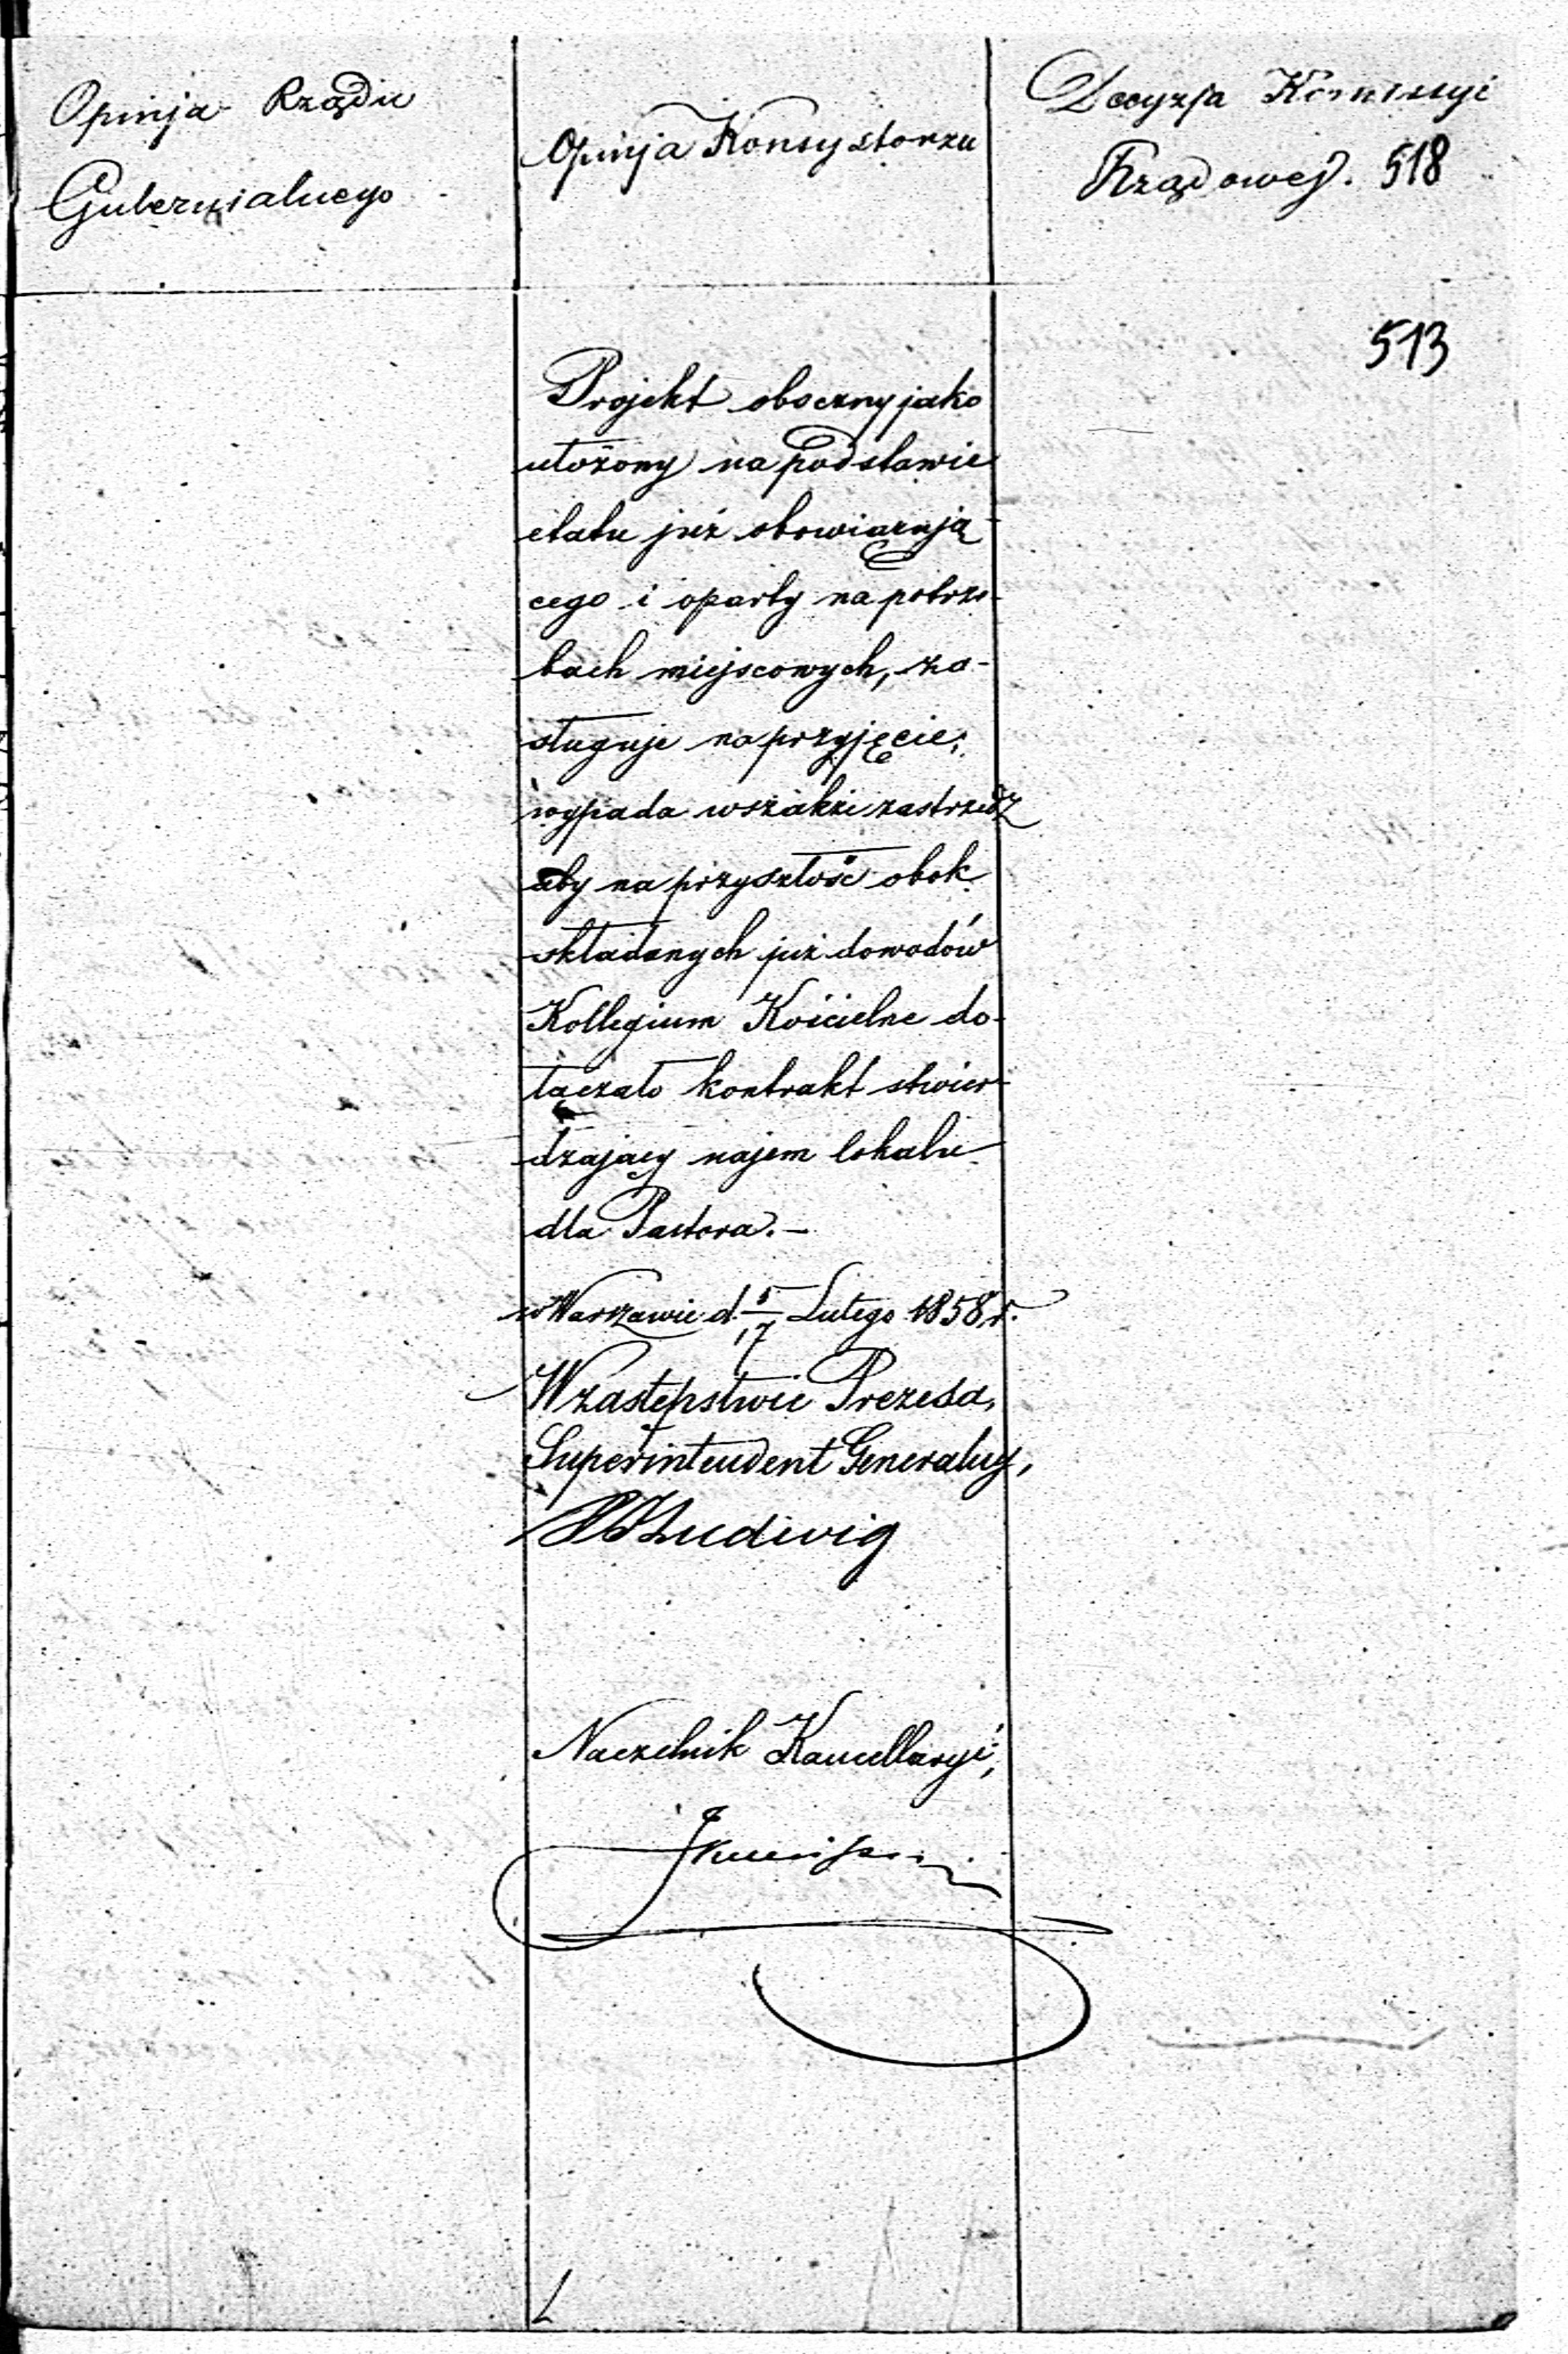 Opinja Rządu
Gubernialnego
Opinja Konsystorzu
Decyzja Kommissyi
Rządowej. 518
513
Projekt oboczny jako
ułożony na podstawie
etatu już obowiązują-
cego i oparty na potrze-
bach miejscowych, za-
sługuje na przyjęcie;
wypada wszakże zastrzedz
aby na przyszłość obok
składanych już dowodów
Kollegium Kościelne do-
łączało kontrakt stwier-
dzający najem lokalu
dla Pastora. —
w Warszawie d. 5/17 Lutego 1858 r.
W zastępstwie Prezesa,
Superintendent Generalny,
Ludwig
Naczelnik Kancellaryi,